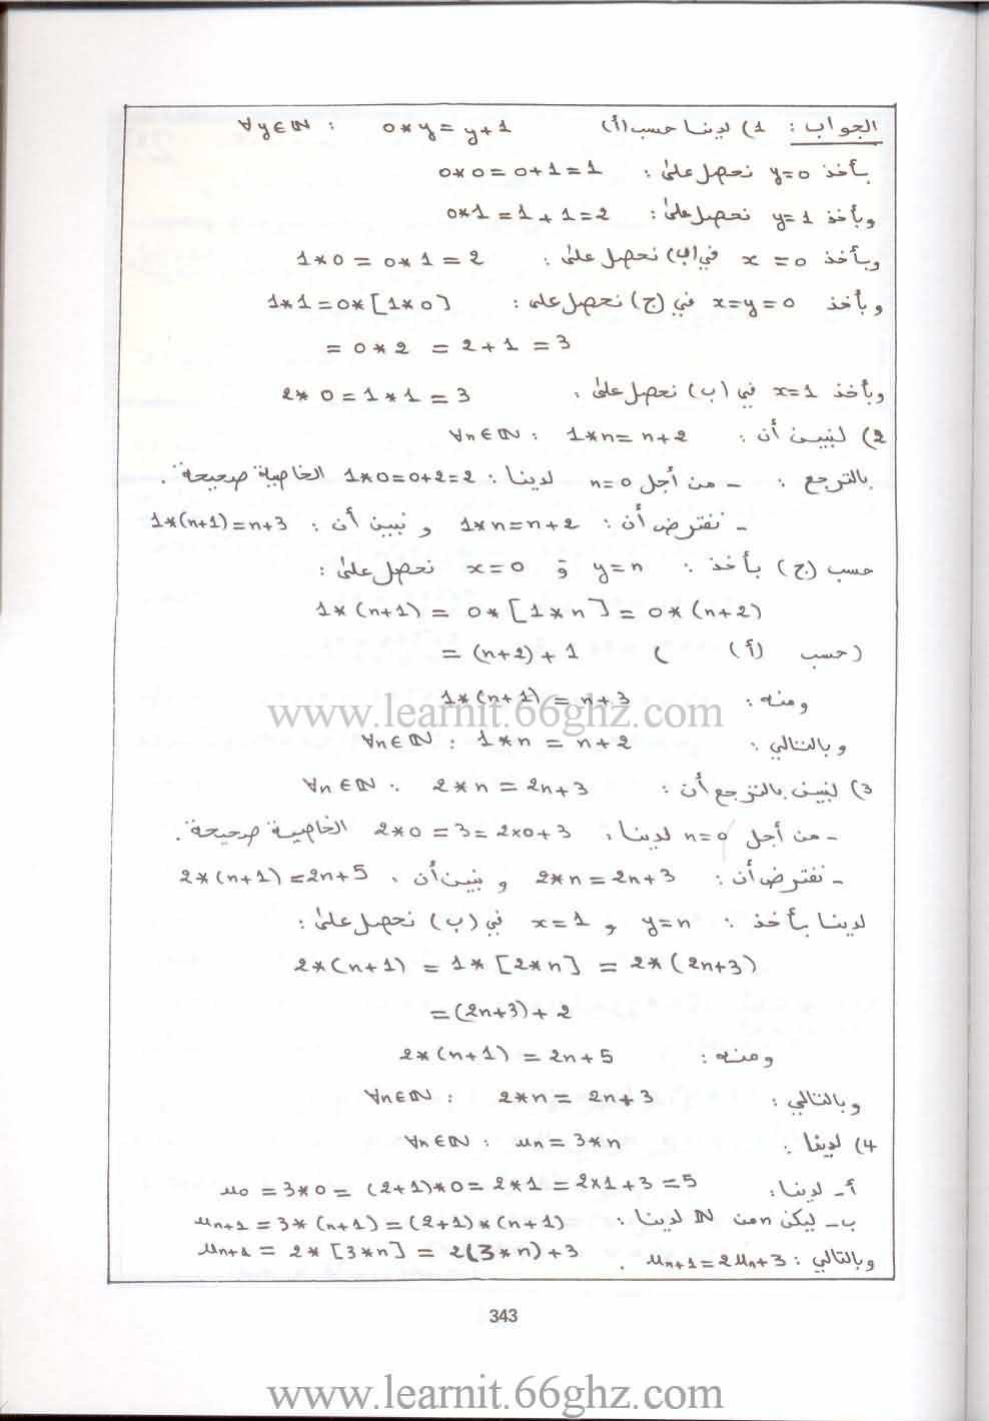 الجواب : 1) لدينا حسب (أ) ∀y∈ℕ : 0*y = y+1
بأخذ y=0 نحصل على : 0*0 = 0+1 = 1
وبأخذ y=1 نحصل على : 0*1 = 1+1 = 2
وبأخذ x=0 في (ب) نحصل على : 1*0 = 0*1 = 2
وبأخذ x=y=0 في (ج) نحصل على : 1*1 = 0*[1*0]
= 0*2 = 2+1 = 3
وبأخذ x=1 في (ب) نحصل على : 2*0 = 1*1 = 3
2) لنبين أن : ∀n∈ℕ : 1*n = n+2
بالترجع : - من أجل n=0 لدينا : 1*0=0+2=2 الخاصية صحيحة .
- نفترض أن : 1*n=n+2 و نبين أن : 1*(n+1)=n+3
حسب (ج) بأخذ : y=n و x=0 نحصل على :
1*(n+1) = 0*[1*n] = 0*(n+2)
= (n+2)+1 ( حسب (أ) )
ومنه : 1*(n+1) = n+3
وبالتالي : ∀n∈ℕ : 1*n = n+2
3) لنبين بالترجع أن : ∀n∈ℕ : 2*n = 2n+3
- من أجل n=0 لدينا : 2*0 = 3 = 2×0+3 الخاصية صحيحة .
- نفترض أن : 2*n = 2n+3 و نبين أن : 2*(n+1) = 2n+5
لدينا بأخذ : y=n و x=1 في (ب) نحصل على :
2*(n+1) = 1*[2*n] = 2*(2n+3)
= (2n+3)+2
ومنه : 2*(n+1) = 2n+5
وبالتالي : ∀n∈ℕ : 2*n = 2n+3
4) لدينا : ∀n∈ℕ : un = 3*n
أ- لدينا : u0 = 3*0 = (2+1)*0 = 2*1 = 2×1+3 = 5
ب- ليكن n من ℕ لدينا : un+1 = 3*(n+1) = (2+1)*(n+1)
un+1 = 2*[3*n] = 2(3*n)+3
وبالتالي : un+1 = 2un+3 .
343
www.learnit.66ghz.com
www.learnit.66ghz.com